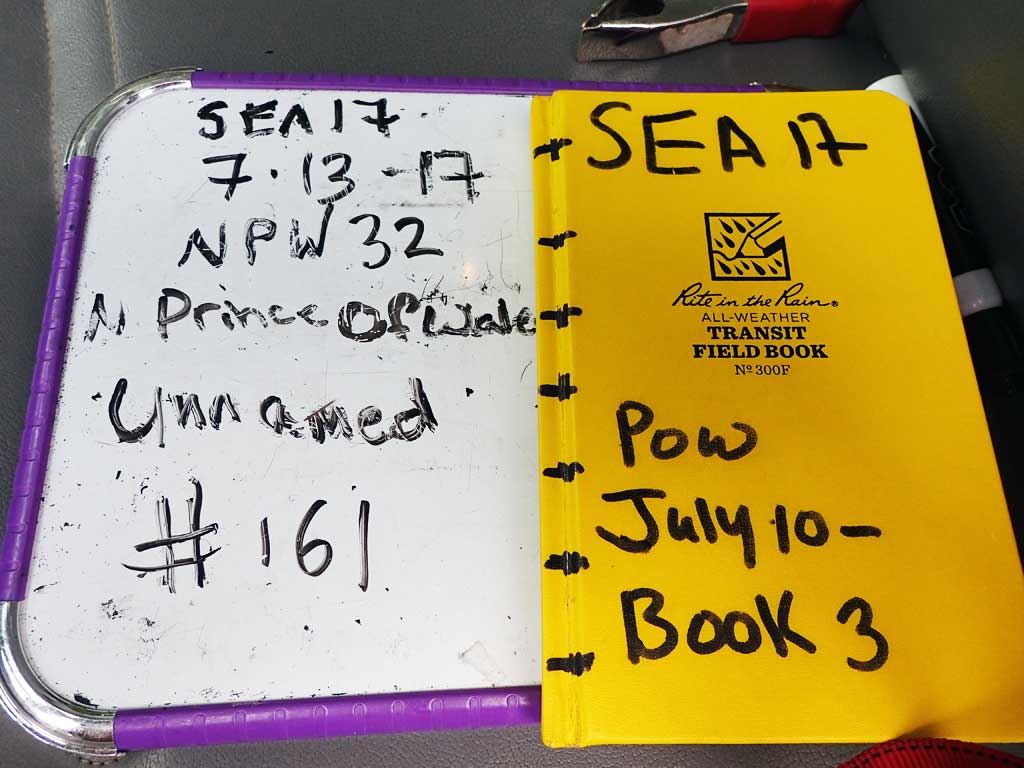 SEA17
7.13-17
NPW 32
N Prince of Wale
Unnamed
#161
SEA 17
Rite in the Rain®
ALL-WEATHER
TRANSIT
FIELD BOOK
Nº 300F
POW
July 10-
BOOK 3